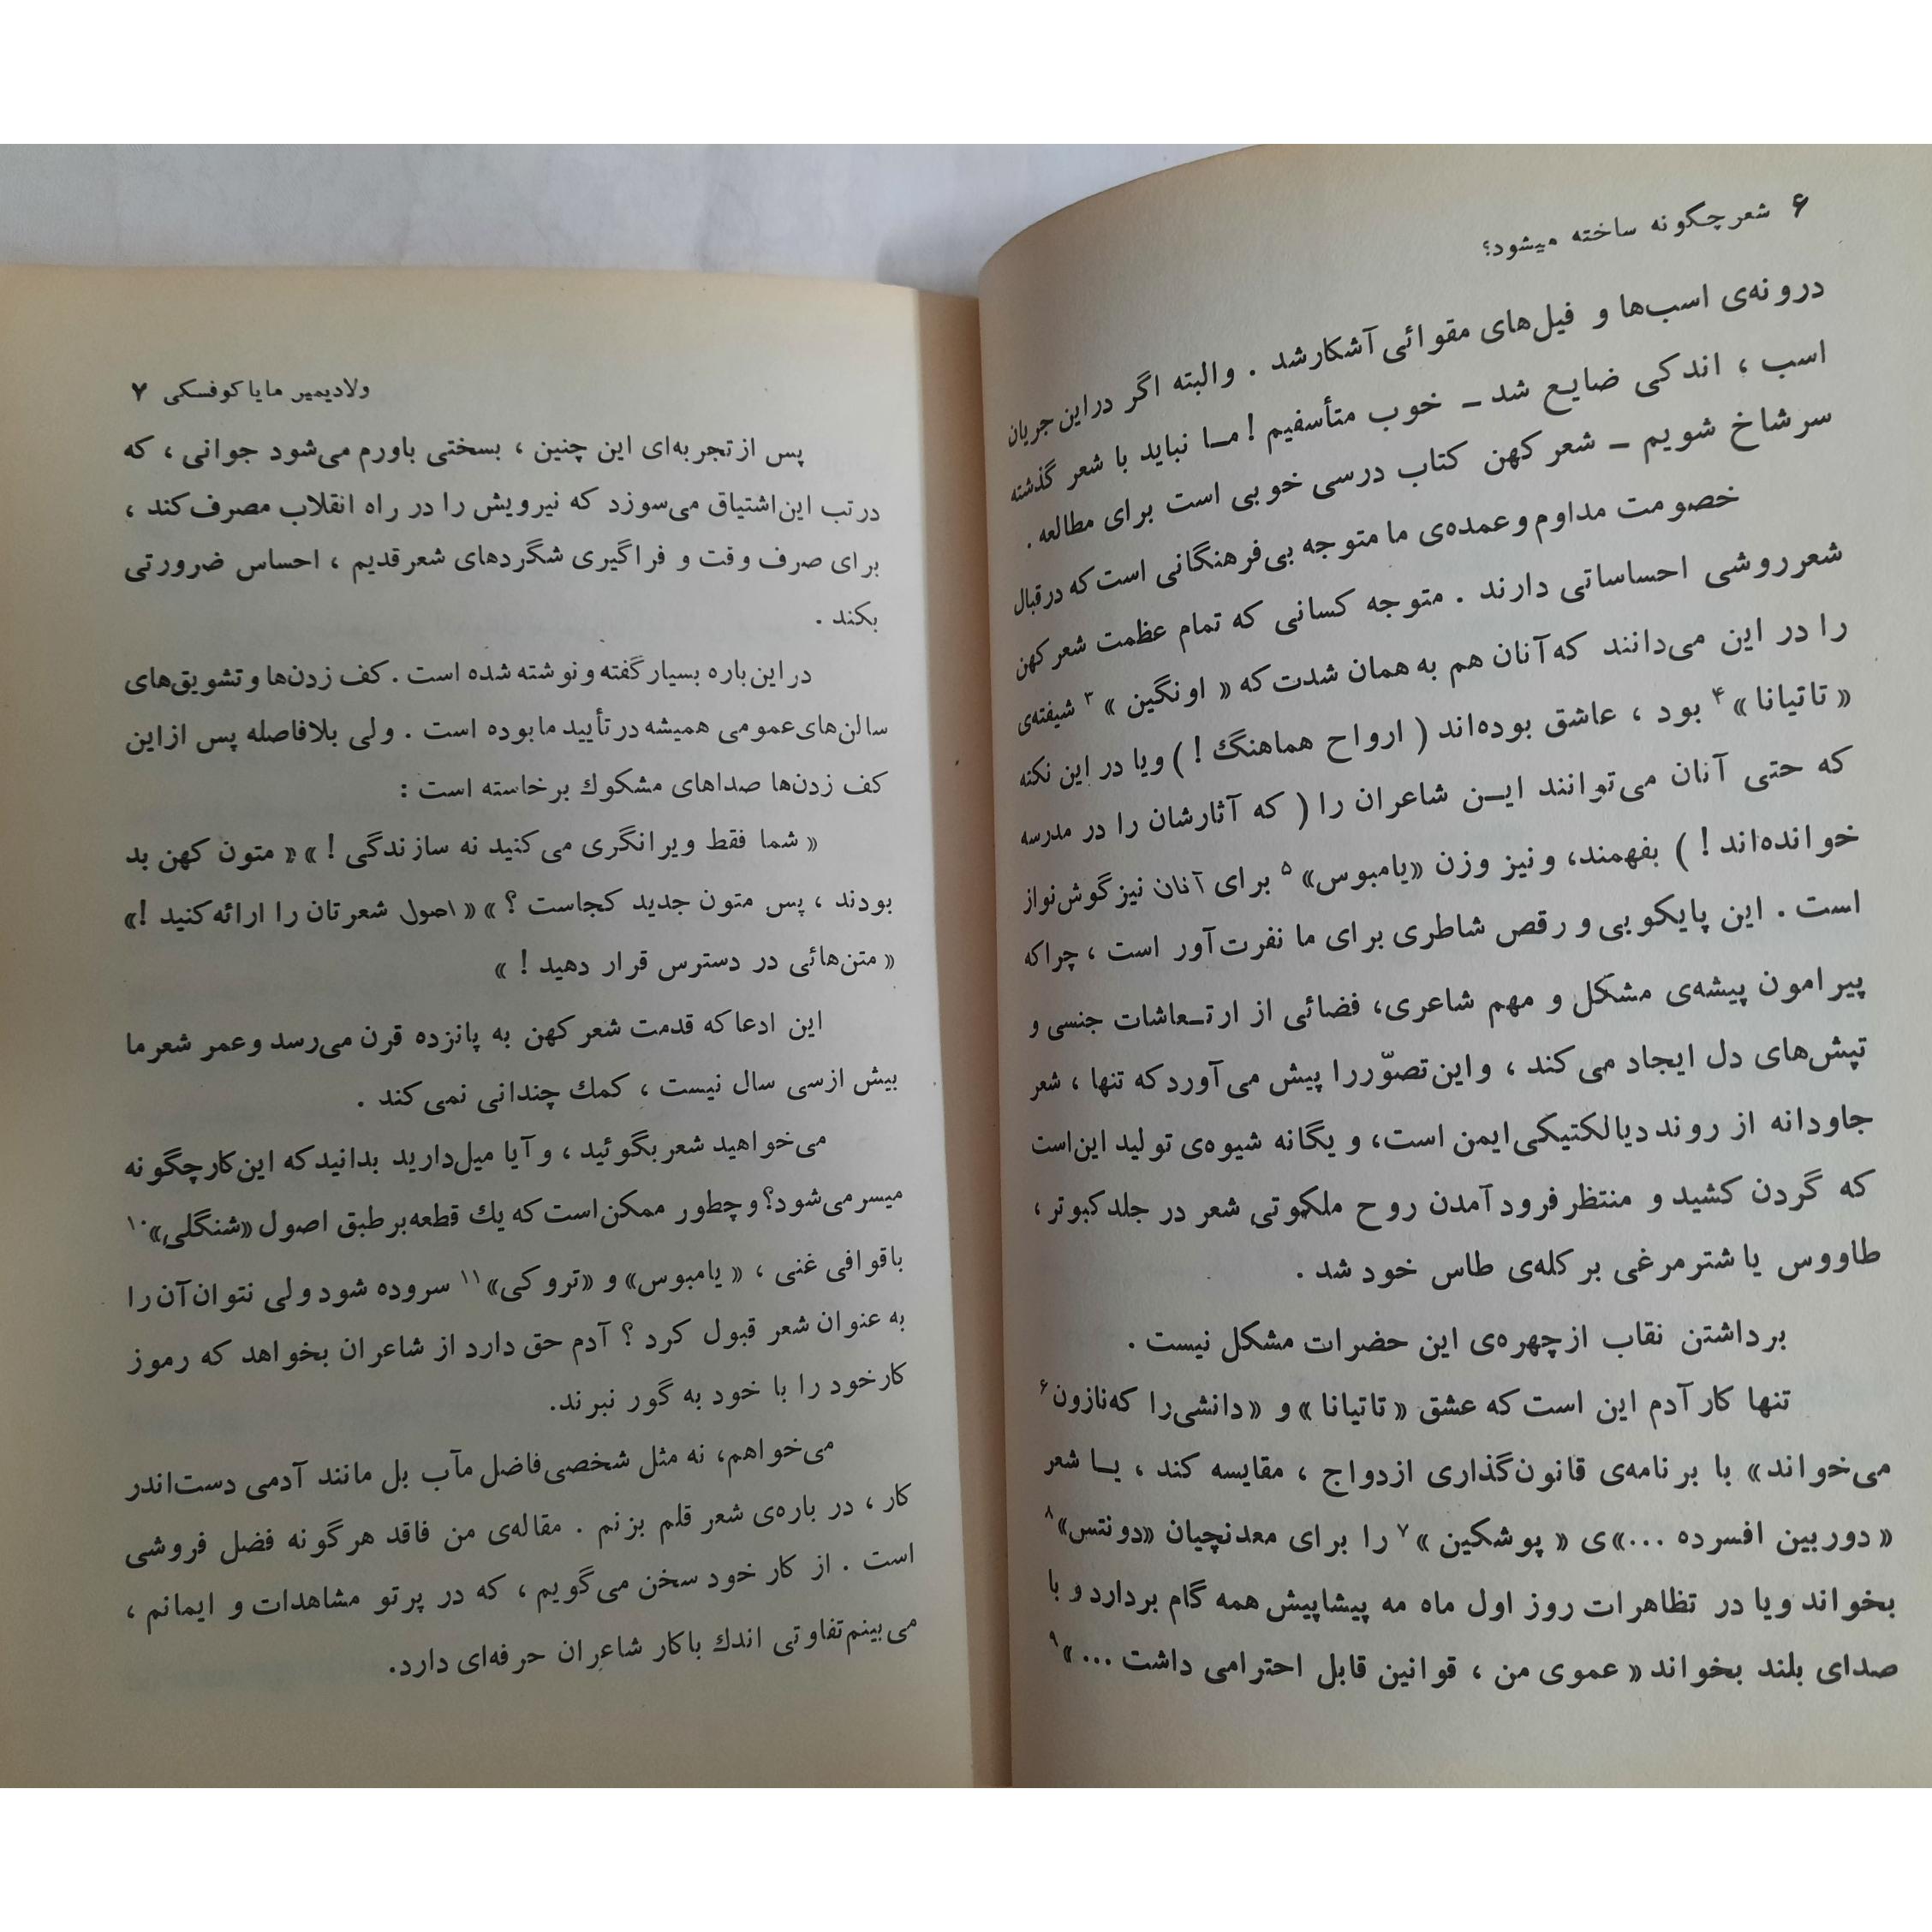 ۶ شعر چگونه ساخته میشود؟
درونه‌ی اسب‌ها و فیل‌های مقوائی آشکارشد . والبته اگر دراین جریان
اسب ، اندکی ضایع شد ـ خوب متأسفیم ! مـا نباید با شعر گذشته
سرشاخ شویم ـ شعر کهن کتاب درسی خوبی است برای مطالعه .
خصومت مداوم وعمده‌ی ما متوجه بی‌فرهنگانی است که درقبال
شعر روشی احساساتی دارند . متوجه کسانی که تمام عظمت شعر کهن
را در این می‌دانند که‌آنان هم به همان شدت که « اونگین » ۳ شیفته‌ی
« تاتیانا » ۴ بود ، عاشق بوده‌اند ( ارواح هماهنگ ! ) ویا در این نکته
که حتی آنان می‌توانند ایـن شاعران را ( که آثارشان را در مدرسه
خوانده‌اند ! ) بفهمند، ونیز وزن «یامبوس» ۵ برای آنان نیز گوش‌نواز
است . این پایکوبی و رقص شاطری برای ما نفرت‌آور است ، چراکه
پیرامون پیشه‌ی مشکل و مهم شاعری، فضائی از ارتـعاشات جنسی و
تپش‌های دل ایجاد می‌کند ، واین تصوّررا پیش می‌آورد که تنها ، شعر
جاودانه از روند دیالکتیکی ایمن است، و یگانه شیوه‌ی تولید این‌است
که گردن کشید و منتظر فرودآمدن روح ملکوتی شعر در جلد کبوتر ،
طاووس یا شترمرغی بر کله‌ی طاس خود شد .
برداشتن نقاب از چهره‌ی این حضرات مشکل نیست .
تنها کار آدم این است که عشق « تاتیانا » و « دانشی‌را که‌نازون ۶
می‌خواند» با برنامه‌ی قانون‌گذاری ازدواج ، مقایسه کند ، یـا شعر
« دوربین افسرده ...»ی « پوشکین » ۷ را برای معدنچیان «دونتس» ۸
بخواند ویا در تظاهرات روز اول ماه مه پیشاپیش همه گام بردارد و با
صدای بلند بخواند « عموی من ، قوانین قابل احترامی داشت ... » ۹
ولادیمیر مایاکوفسکی ۷
پس از تجربه‌ای این چنین ، بسختی باورم می‌شود جوانی ، که
درتب این‌اشتیاق می‌سوزد که نیرویش را در راه انقلاب مصرف‌کند ،
برای صرف وقت و فراگیری شگردهای شعرقدیم ، احساس ضرورتی
بکند .
دراین‌باره بسیار گفته و نوشته شده است . کف زدن‌ها و تشویق‌های
سالن‌های عمومی همیشه در تأیید ما بوده است . ولی بلافاصله پس از این
کف زدن‌ها صداهای مشکوك برخاسته است :
« شما فقط ویرانگری می‌کنید نه سازندگی ! » « متون کهن بد
بودند ، پس متون جدید کجاست ؟ » « اصول شعرتان را ارائه کنید ! »
« متن‌هائی در دسترس قرار دهید ! »
این ادعا که قدمت شعر کهن به پانزده قرن می‌رسد وعمر شعرما
بیش ازسی سال نیست ، کمك چندانی نمی‌کند .
می‌خواهید شعر بگوئید ، و آیا میل‌دارید بدانید که این‌کار چگونه
میسر می‌شود؟ و چطور ممکن‌است که یك قطعه برطبق اصول «شنگلی» ۱۰
باقوافی غنی ، « یامبوس» و «تروکی» ۱۱ سروده شود ولی نتوان‌آن را
به عنوان شعر قبول کرد ؟ آدم حق دارد از شاعران بخواهد که رموز
کارخود را با خود به گور نبرند.
می‌خواهم، نه مثل شخصی‌فاضل مآب بل مانند آدمی دست‌اندر
کار ، در باره‌ی شعر قلم بزنم . مقاله‌ی من فاقد هرگونه فضل فروشی
است . از کار خود سخن می‌گویم ، که در پرتو مشاهدات و ایمانم ،
می‌بینم تفاوتی اندك باکار شاعران حرفه‌ای دارد.